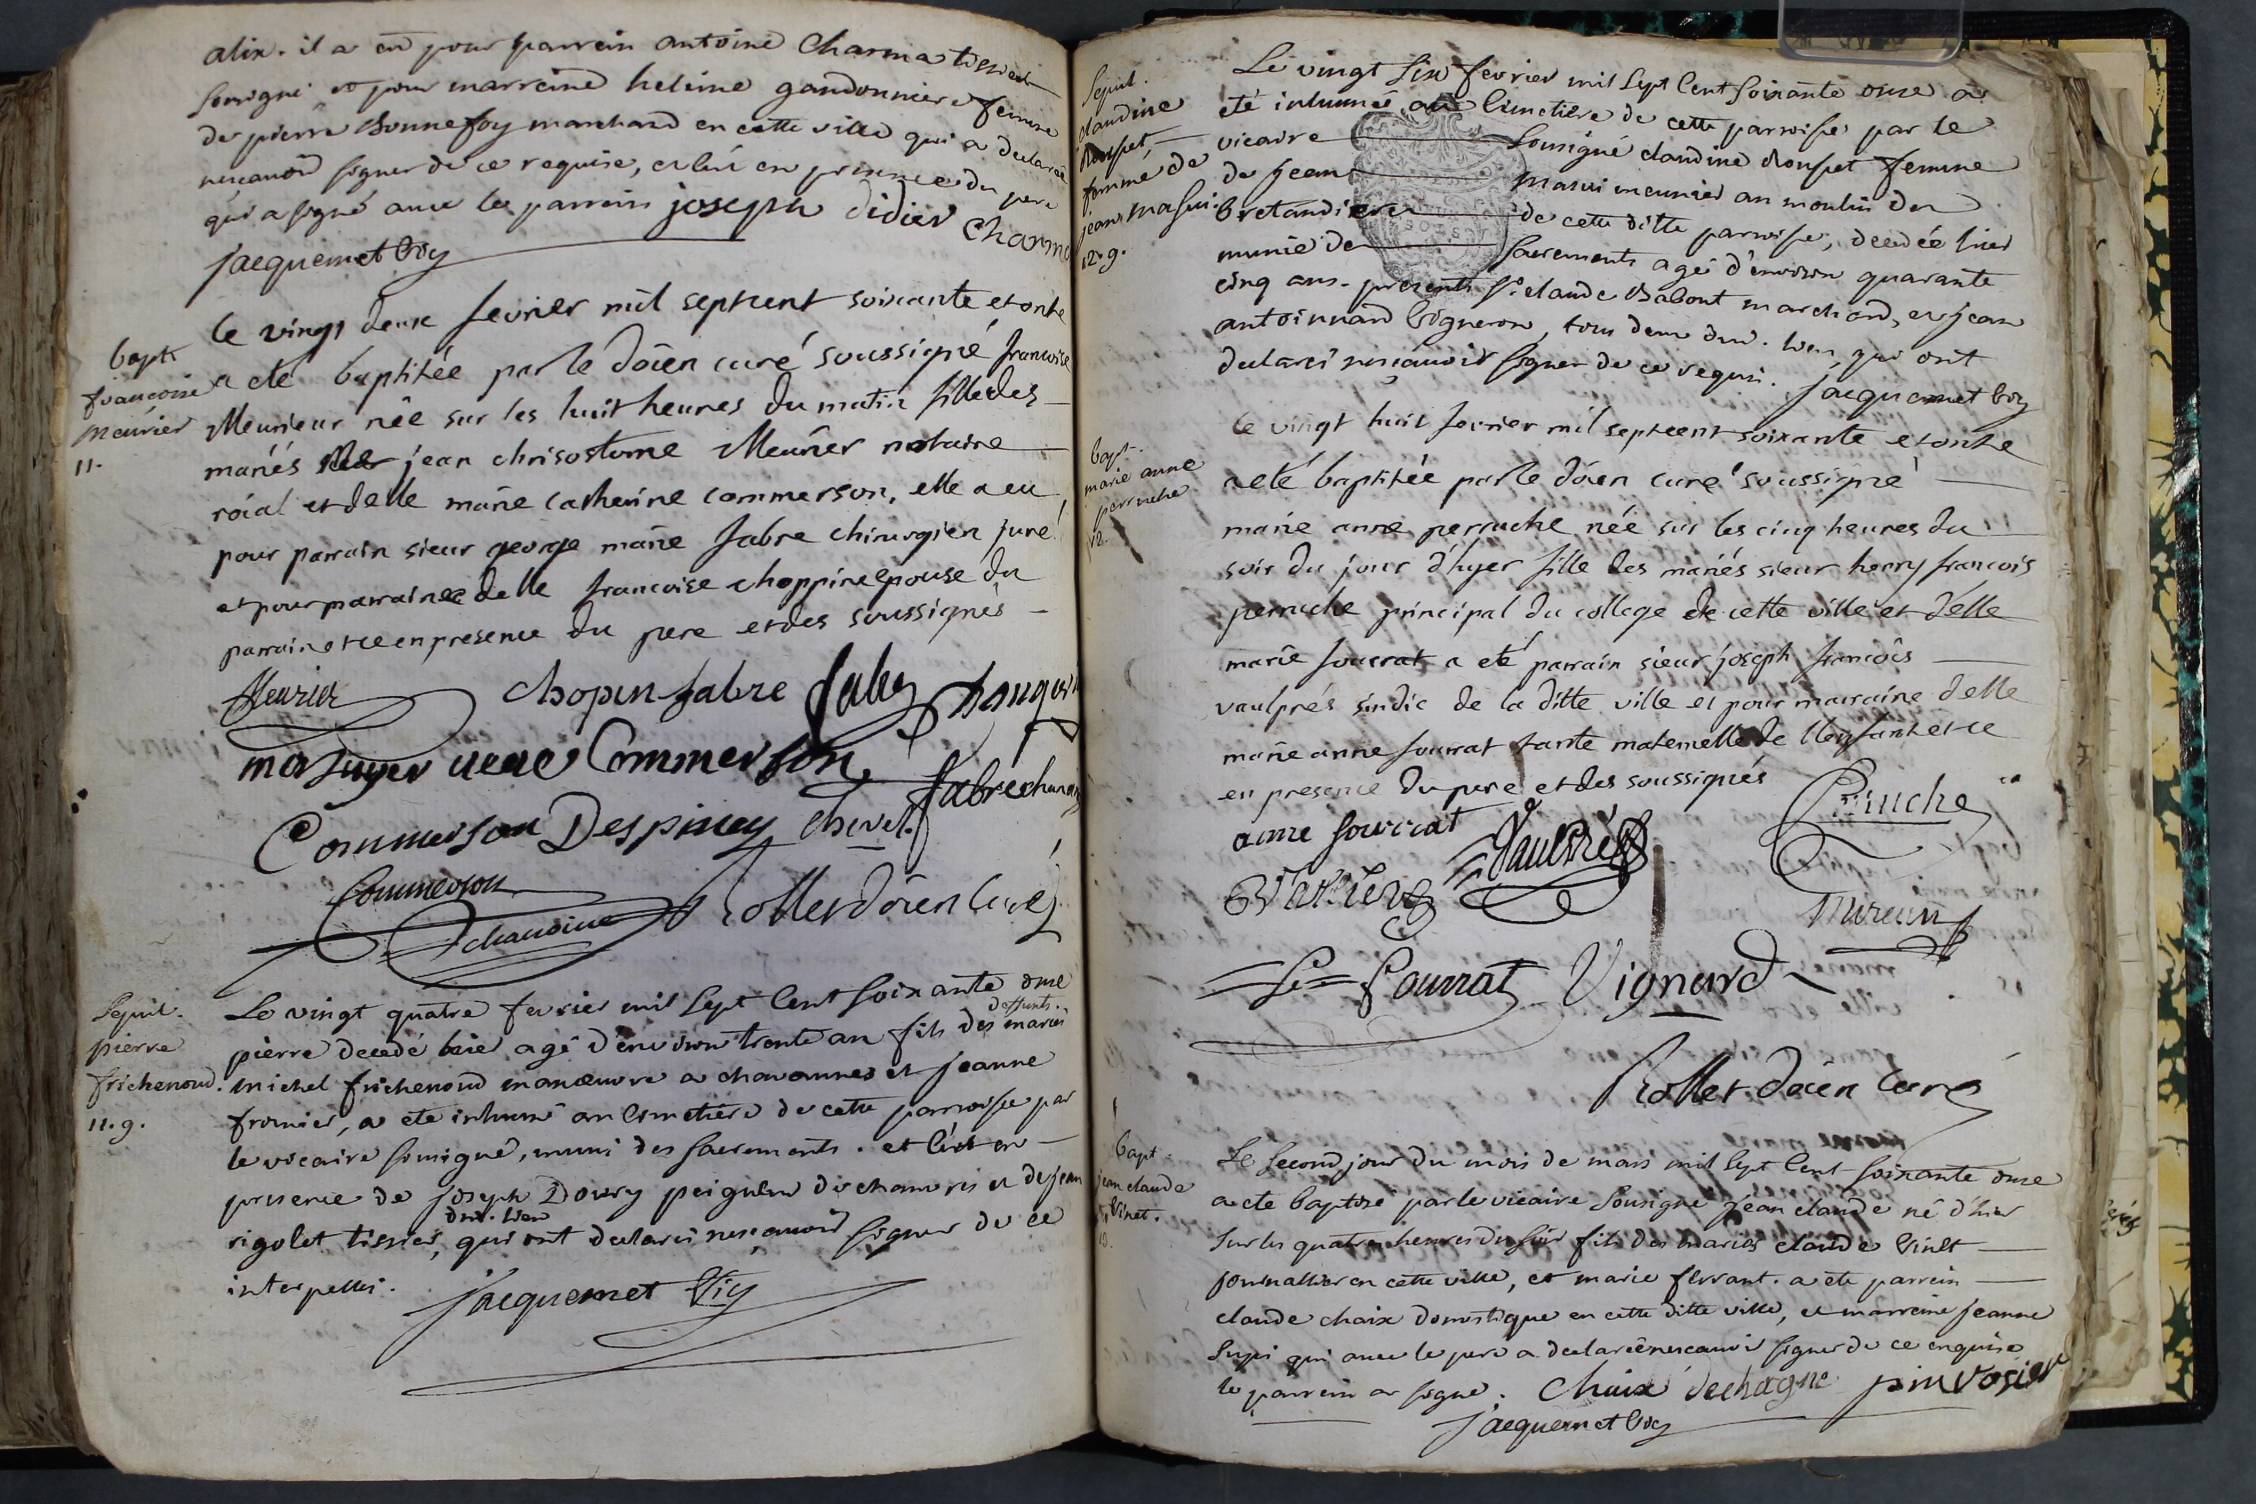 alix. il a eû pour parrein antoine Charma tissier
sousigné et pour marreine helene gandonniere femme
de pierre Bonnefoy marchand en cette ville qui a declarée
nesçavoir signer de ce requise, celui en presence du pere
qui a signé avec le parrein joseph didier Charma
jacquemet vic
bapt
francoise
meurier
11.
le vingt deux fevrier mil septcent soixante et onhe
a été baptitée par le doïen curé soussigné francoise
Meurieur née sur les huit heures du matin filledes
mariés jean chrisostome Meurier notaire
roïal et delle marie catherine commerson, elle a eu
pour parrain sieur george marie fabre chirurgien juré
et pour marraine delle francoise choppin epouse du
parrain et ce en presence du pere et des soussignés
Meurier chopin fabre fabre
masuyer veuve Commerson
Commerson Despiney chevel. fabre chanoine
Commerson
chanoine rollet doïen curé
Sepul.
pierre
frichenoud.
11. 9.
Le vingt quatre fevrier mil sept Cent soixante onse
deffunts.
pierre decedé hier agé d'environ trente an fils des mariés
michel frichenoud manœuvre a chavannes et jeanne
fromier, a ete inhumé au Cimetiére de cette parroisse par
le vicaire sousigné, muni des sacrements. et c'est en
presence de joseph Doury peigneur de chanvres et de jean
dud. lieu
rigolet tissier, qui ont declarés nesçavoir signer de ce
interpellés. jacquemet Vic
Sepul.
claudine
Rouset
femme de
jean masui.
12. 9.
Le vingt six fevrier mil sept Cent soixante onse a
eté inhumée au Cimetiére de cette parroisse par le
vicaire sousigné claudine Rouset femme
de jean masui meunier au moulin de
bretandiere de cette ditte parroisse, decedée hier
munie de sacrements agé d'environ quarante
cinq ans. presents sr. claude Babout marchand, et jean
antoinnard vigneron, tous deux dud. lieu, qui ont
declarés nesçavoir signer de ce requis. jacquemet vic
bapt.
marie anne
perruche
12.
le vingt huit fevrier mil septcent soixante et onhe
a eté baptitée par le doïen curé soussigné
marie anne perruche née sur les cinq heures du
soir du jour d'hyer fille des mariés sieur henry francois
perruche principal du college de cette ville et delle
marie sourrat a eté parrain sieur joseph francois
vaulprés sindic de la ditte ville et pour marraine delle
marie anne sourrat tante maternelle de l'enfant et ce
en presence du pere et des soussignés
anne sourrat Vaulprés Perruche
Sourrat Vignard
rollet doïen curé
bapt.
jean claude
Vinet.
13.
Le second jour du mois de mars mil sept Cent soixante onse
a ete baptisé par le vicaire sousigné jean claude né d'hier
sur les quatre heures du soir fils des mariés claude Vinet
journallier en cette ville, et marie ferrant. a ete parrein
claude chaix domestique en cette ditte ville, et marreine jeanne
supi qui avec le pere a declarée nescavoir signer de ce enquise
le parrein a signé. Chaix dechagne
jacquemet vic